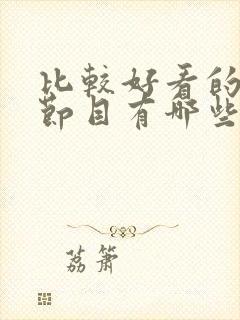 比较好看的
节目有哪些
荔箫